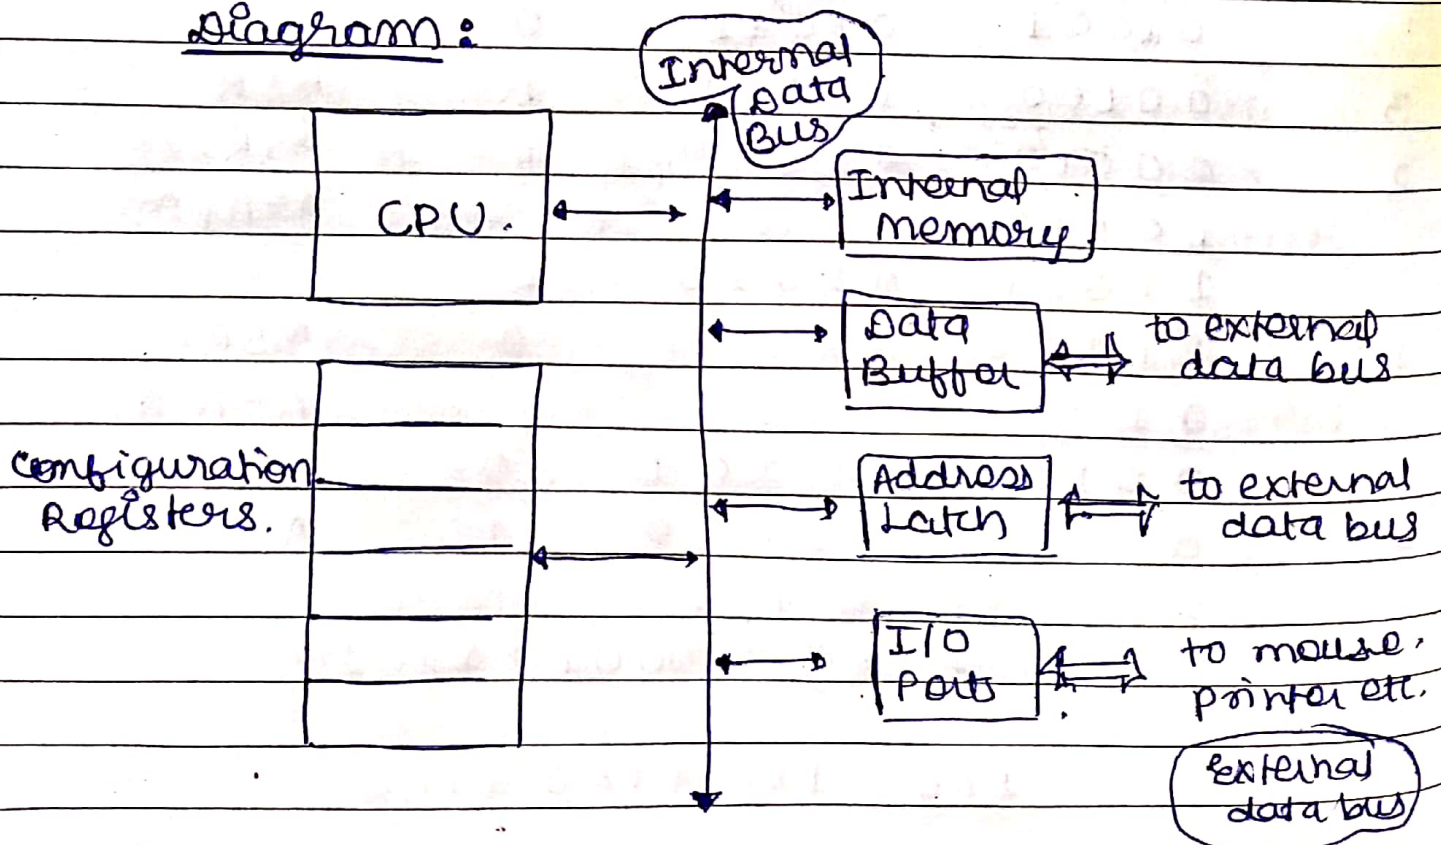 Diagram:
Internal
Data
Bus
CPU.
Internal
memory
Data
Buffer
to external
data bus
Configuration
Registers.
Address
Latch
to external
data bus
I/O
Ports
to mouse,
printer etc.
External
data bus